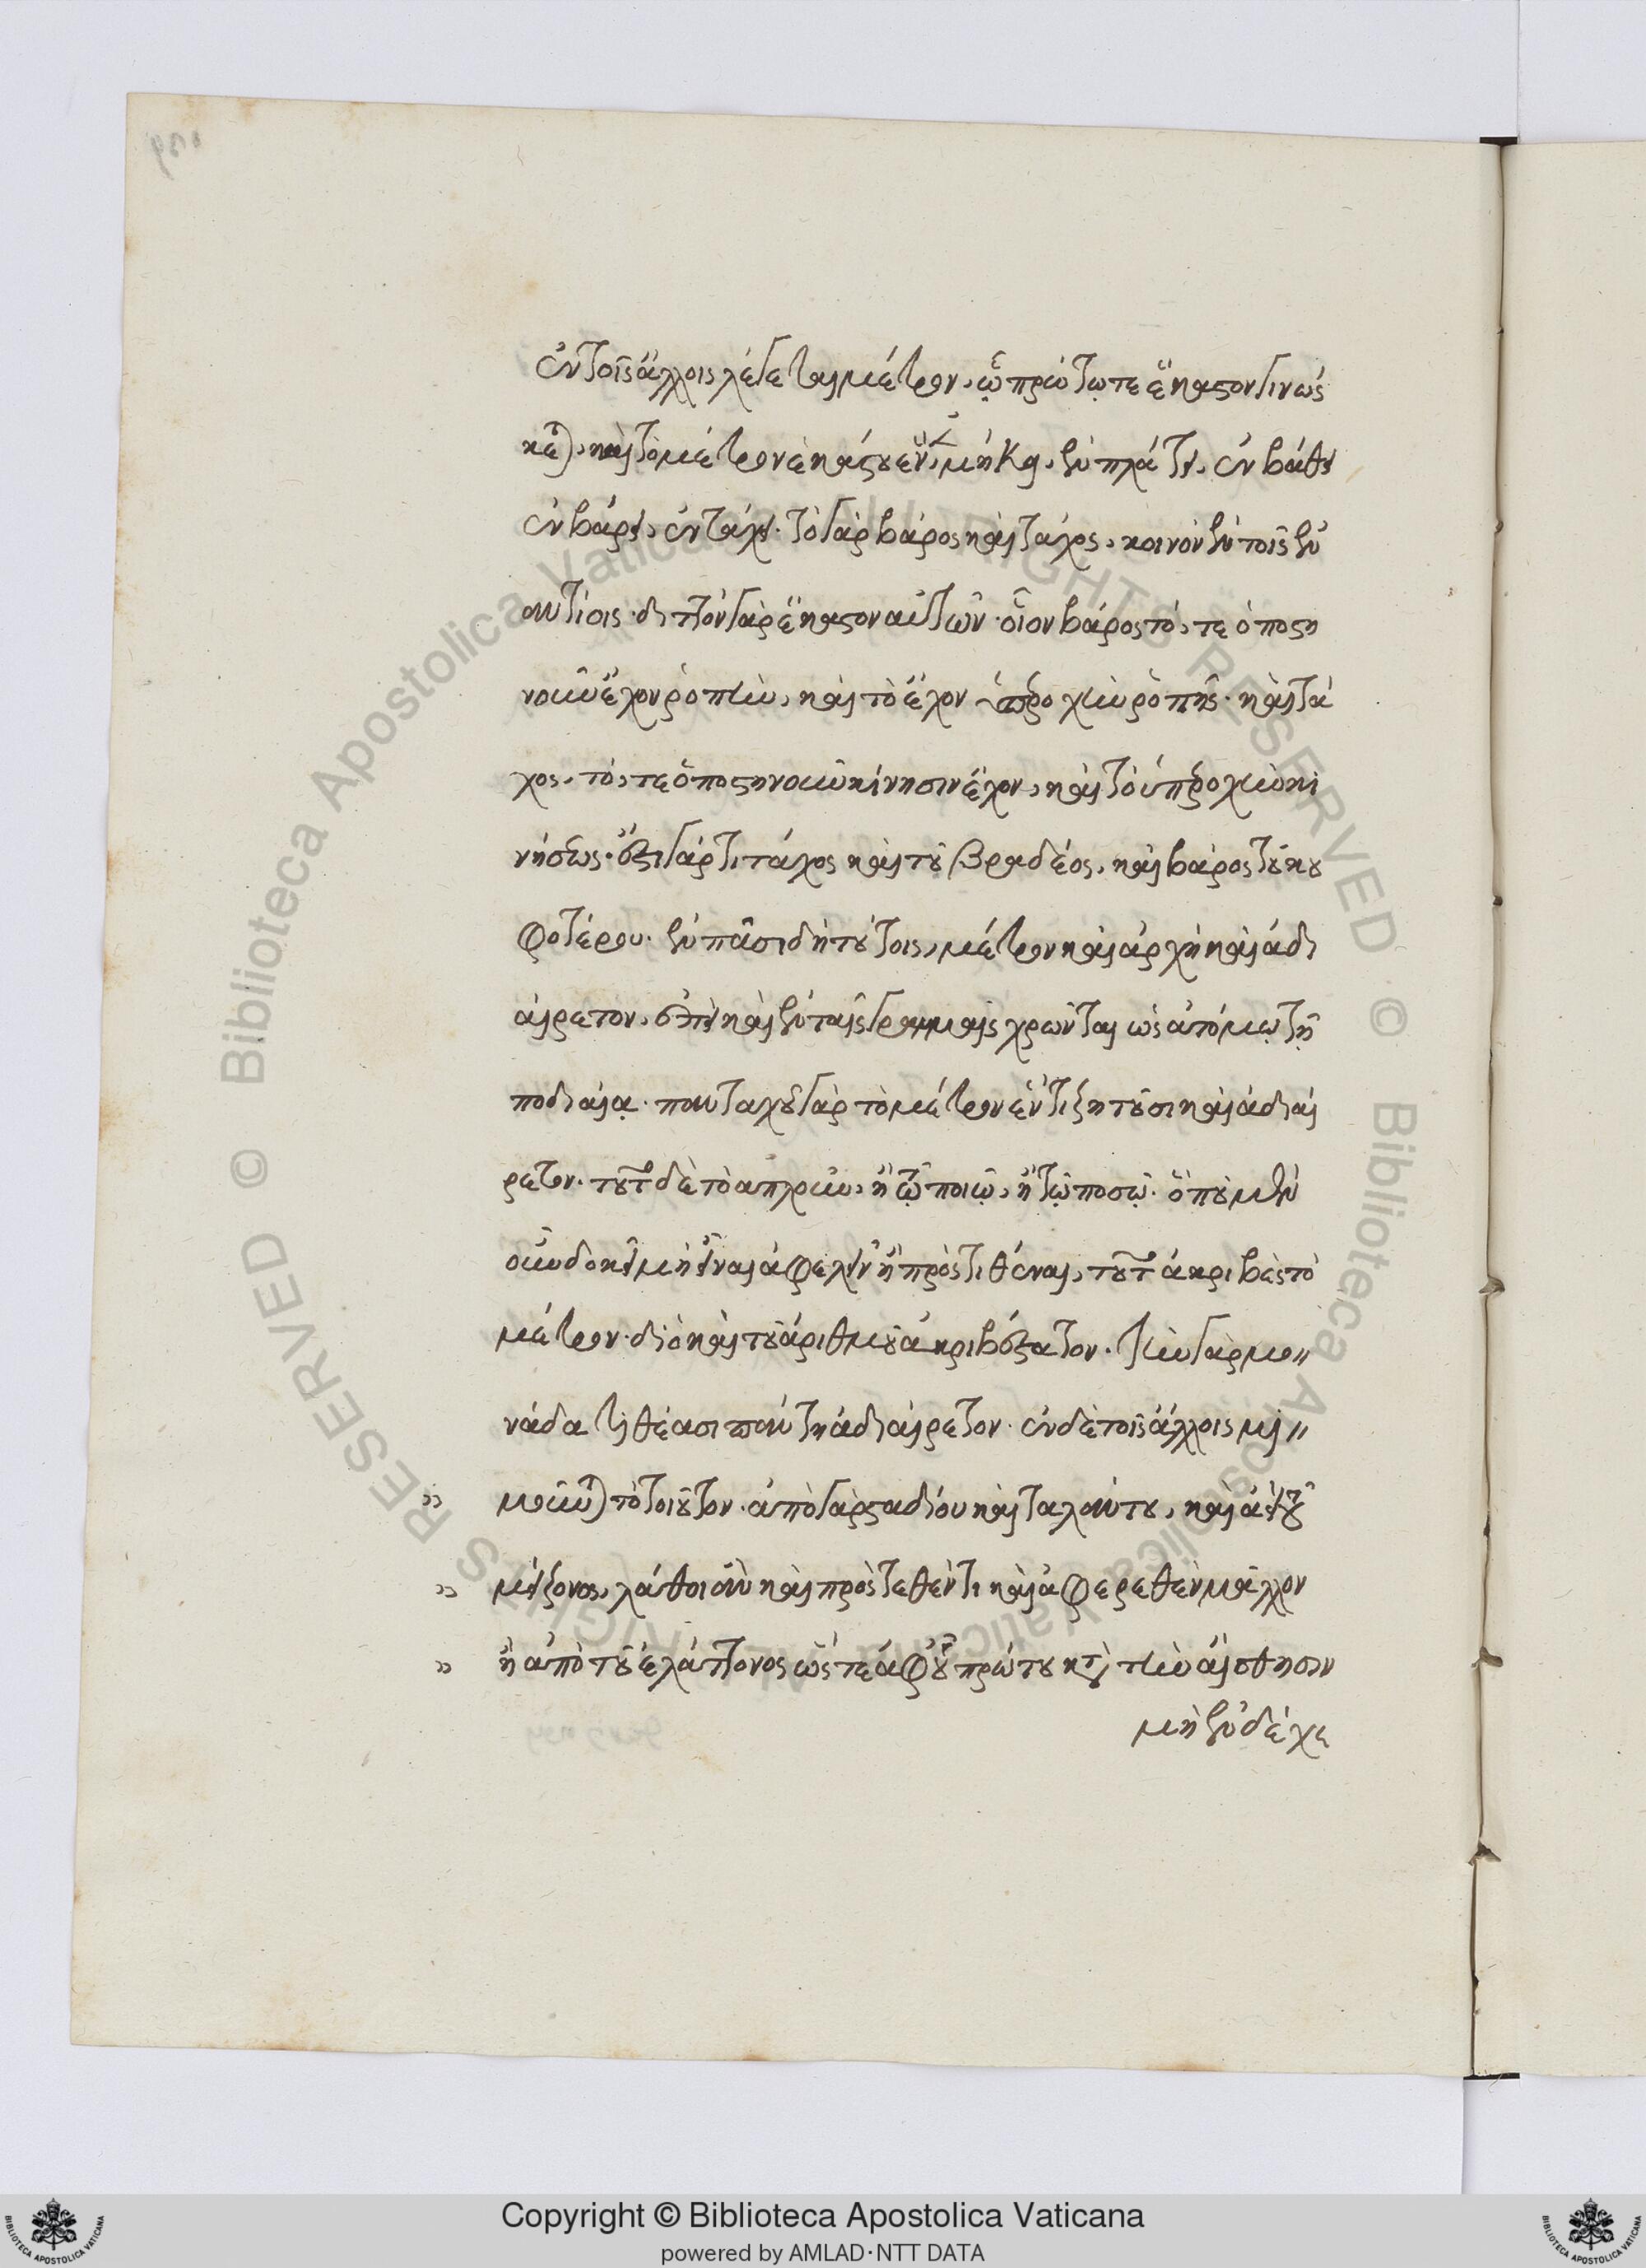 ἐν τοῖς ἄλλοις λέγεται μέτρον, ᾧ πρώτῳ τε ἕκαστον γινώς
κεται, καὶ τὸ μέτρον ἑκάστου ἓν, μήκει, ἐν πλάτει, ἐν βάθει
ἐν βάρει, ἐν τάχει. τὸ γὰρ βάρος καὶ τάχος, κοινὸν ἐν τοῖς ἐν
αντίοις. διττὸν γὰρ ἕκαστον αὐτῶν. οἷον βάρος τό, τε ὁποση
νοῦν ἔχον ῥοπὴν, καὶ τὸ ἔχον ὑπεροχὴν ῥοπῆς. καὶ τά
χος, τό, τε ὁποσηνοῦν κίνησιν ἔχον, καὶ τὸ ὑπεροχὴν κι
νήσεως. ἔστι γάρ τι τάχος καὶ τοῦ βραδέος, καὶ βάρος τοῦ κου
φοτέρου. ἐν πᾶσι δὴ τούτοις, μέτρον καὶ ἀρχὴ καὶ ἀδι
αίρετον, ἐπεὶ καὶ ἐν ταῖς γραμμαῖς χρῶνται ὡς ἀτόμῳ τῇ
ποδιαίᾳ. πανταχοῦ γὰρ τὸ μέτρον ἕν τι ζητοῦσι καὶ ἀδιαί
ρετον. τοῦτο δὲ τὸ απλοῦν, ἢ τῷ ποιῷ, ἢ τῷ ποσῷ. ὅπου μὲν
οὖν δοκεῖ μὴ εἶναι ἀφελεῖν ἢ πρὸςτιθέναι, τοῦτο ἀκριβὲς τὸ
μέτρον. διὸ καὶ τοῦ ἀριθμοῦ ἀκριβέστατον. τὴν γὰρ μο〃
νάδα τιθέασι πάντη ἀδιαίρετον. ἐν δὲ τοῖς ἄλλοις μι〃
μοῦνται τὸ τοιοῦτον. ἀπὸ γὰρ σταδίου καὶ ταλάντου, καὶ ἀεὶ τοῦ
μείζονος, λάθοι ἂν καὶ πρὸςτεθέν τι καὶ ἀφερεθὲν μᾶλλον
ἢ ἀπὸ τοῦ ἐλάττονος ὥςτε ἀφ' οὗ πρώτου κατὰ τὴν αἴσθησιν
μὴ ἐνδέχε
Copyright © Biblioteca Apostolica Vaticana
powered by AMLAD·NTT DATA